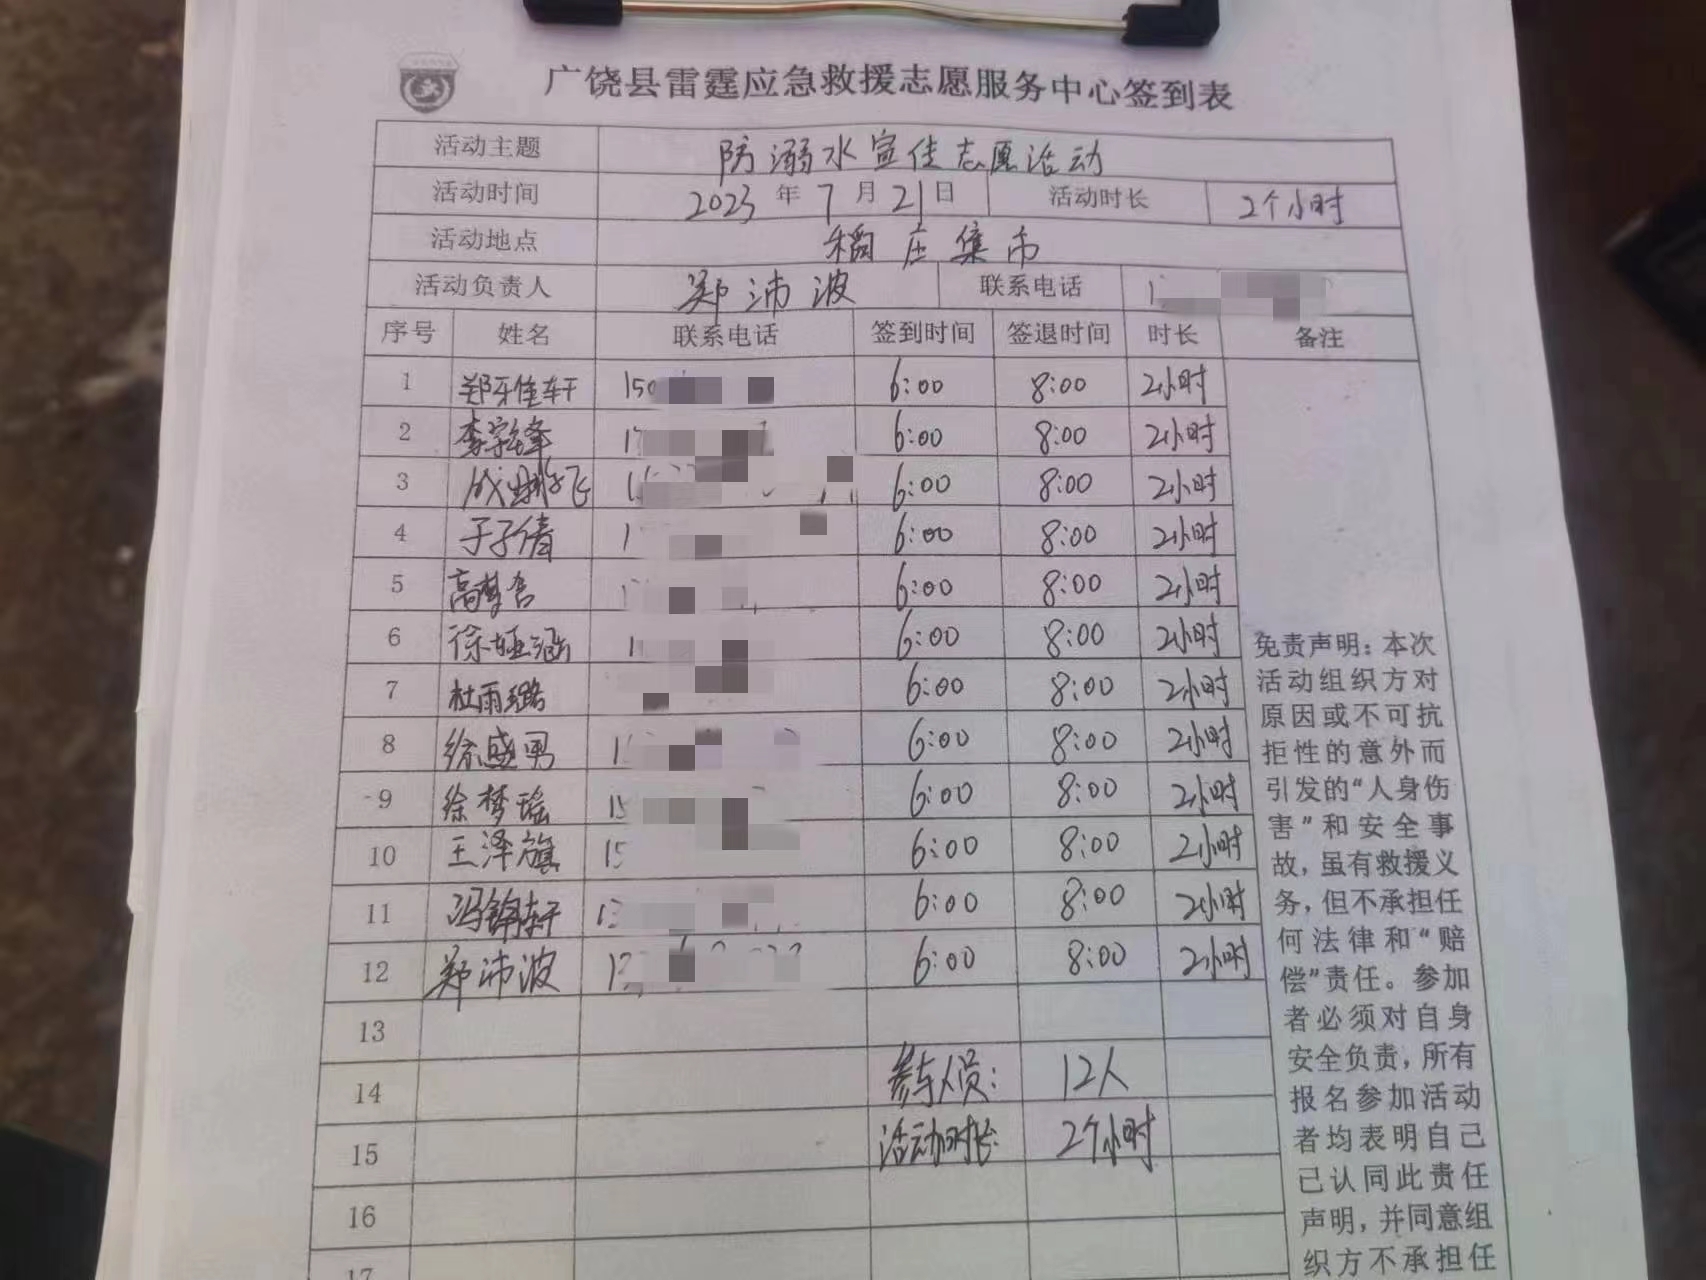 广饶县雷霆应急救援志愿服务中心签到表
活动主题 防溺水宣传志愿活动
活动时间 2023 年 7 月 21 日 活动时长 2个小时
活动地点 稻庄集市
活动负责人 郑沛波 联系电话 1
序号 姓名 联系电话 签到时间 签退时间 时长 备注
1 郑佳轩 150 6:00 8:00 2小时
2 李宗锋 1 6:00 8:00 2小时
3 飞 1 6:00 8:00 2小时
4 于子倩 1 6:00 8:00 2小时
5 高梦含 6:00 8:00 2小时
6 徐娅涵 1 6:00 8:00 2小时
7 杜雨璐 6:00 8:00 2小时
8 徐盛男 1 6:00 8:00 2小时
9 徐梦瑶 15 6:00 8:00 2小时
10 王泽旗 15 6:00 8:00 2小时
11 冯锦轩 13 6:00 8:00 2小时
12 郑沛波 1 6:00 8:00 2小时
13
14 参与人员: 12人
15 活动时长: 2个小时
16
17
免责声明:本次
活动组织方对
原因或不可抗
拒性的意外而
引发的“人身伤
害”和安全事
故,虽有救援义
务,但不承担任
何法律和“赔
偿”责任。参加
者必须对自身
安全负责,所有
报名参加活动
者均表明自己
已认同此责任
声明,并同意组
织方不承担任